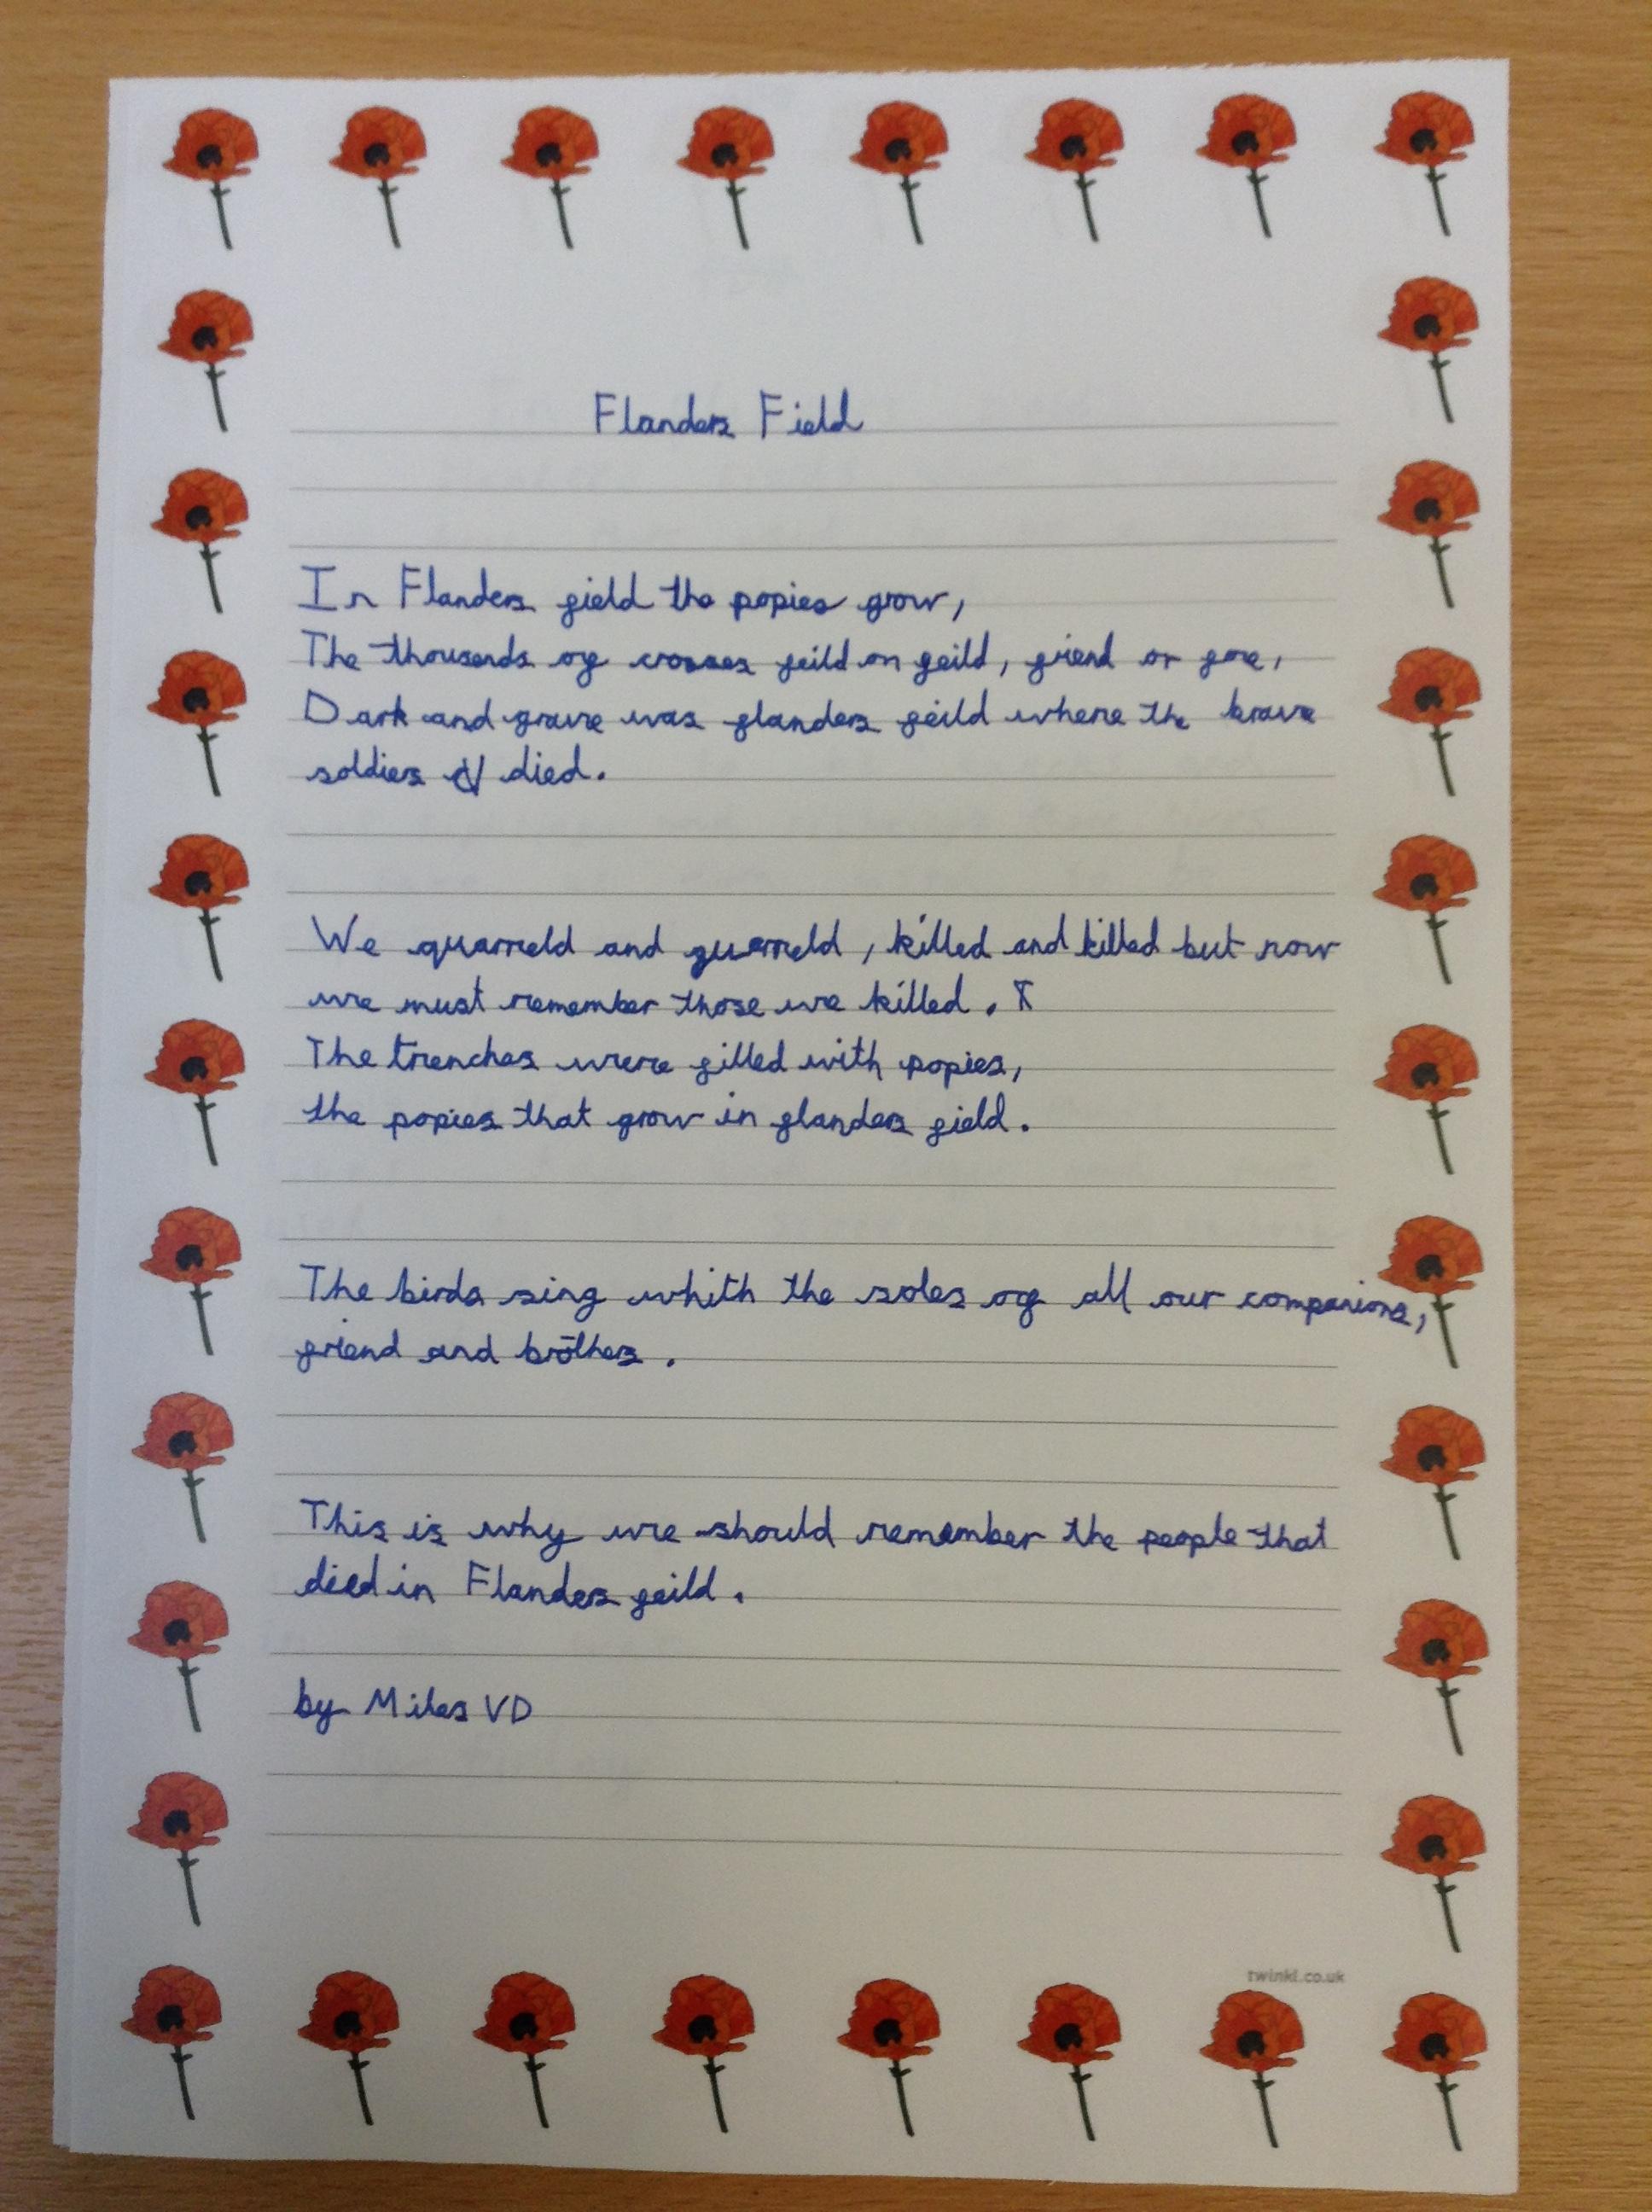 Flanders Field
In Flanders field the popies grow,
The thousands of crosses feild on feild, friend or foe,
Dark and grave was flanders feild where the brave
soldiers died.
We quarreld and quarreld, killed and killed but now
we must remember those we killed.
The trenches were filled with popies,
the popies that grow in flanders field.
The birds sing whith the soles of all our companions,
friend and brothers.
This is why we should remember the people that
died in Flanders feild.
by Miles VD
twinkl.co.uk